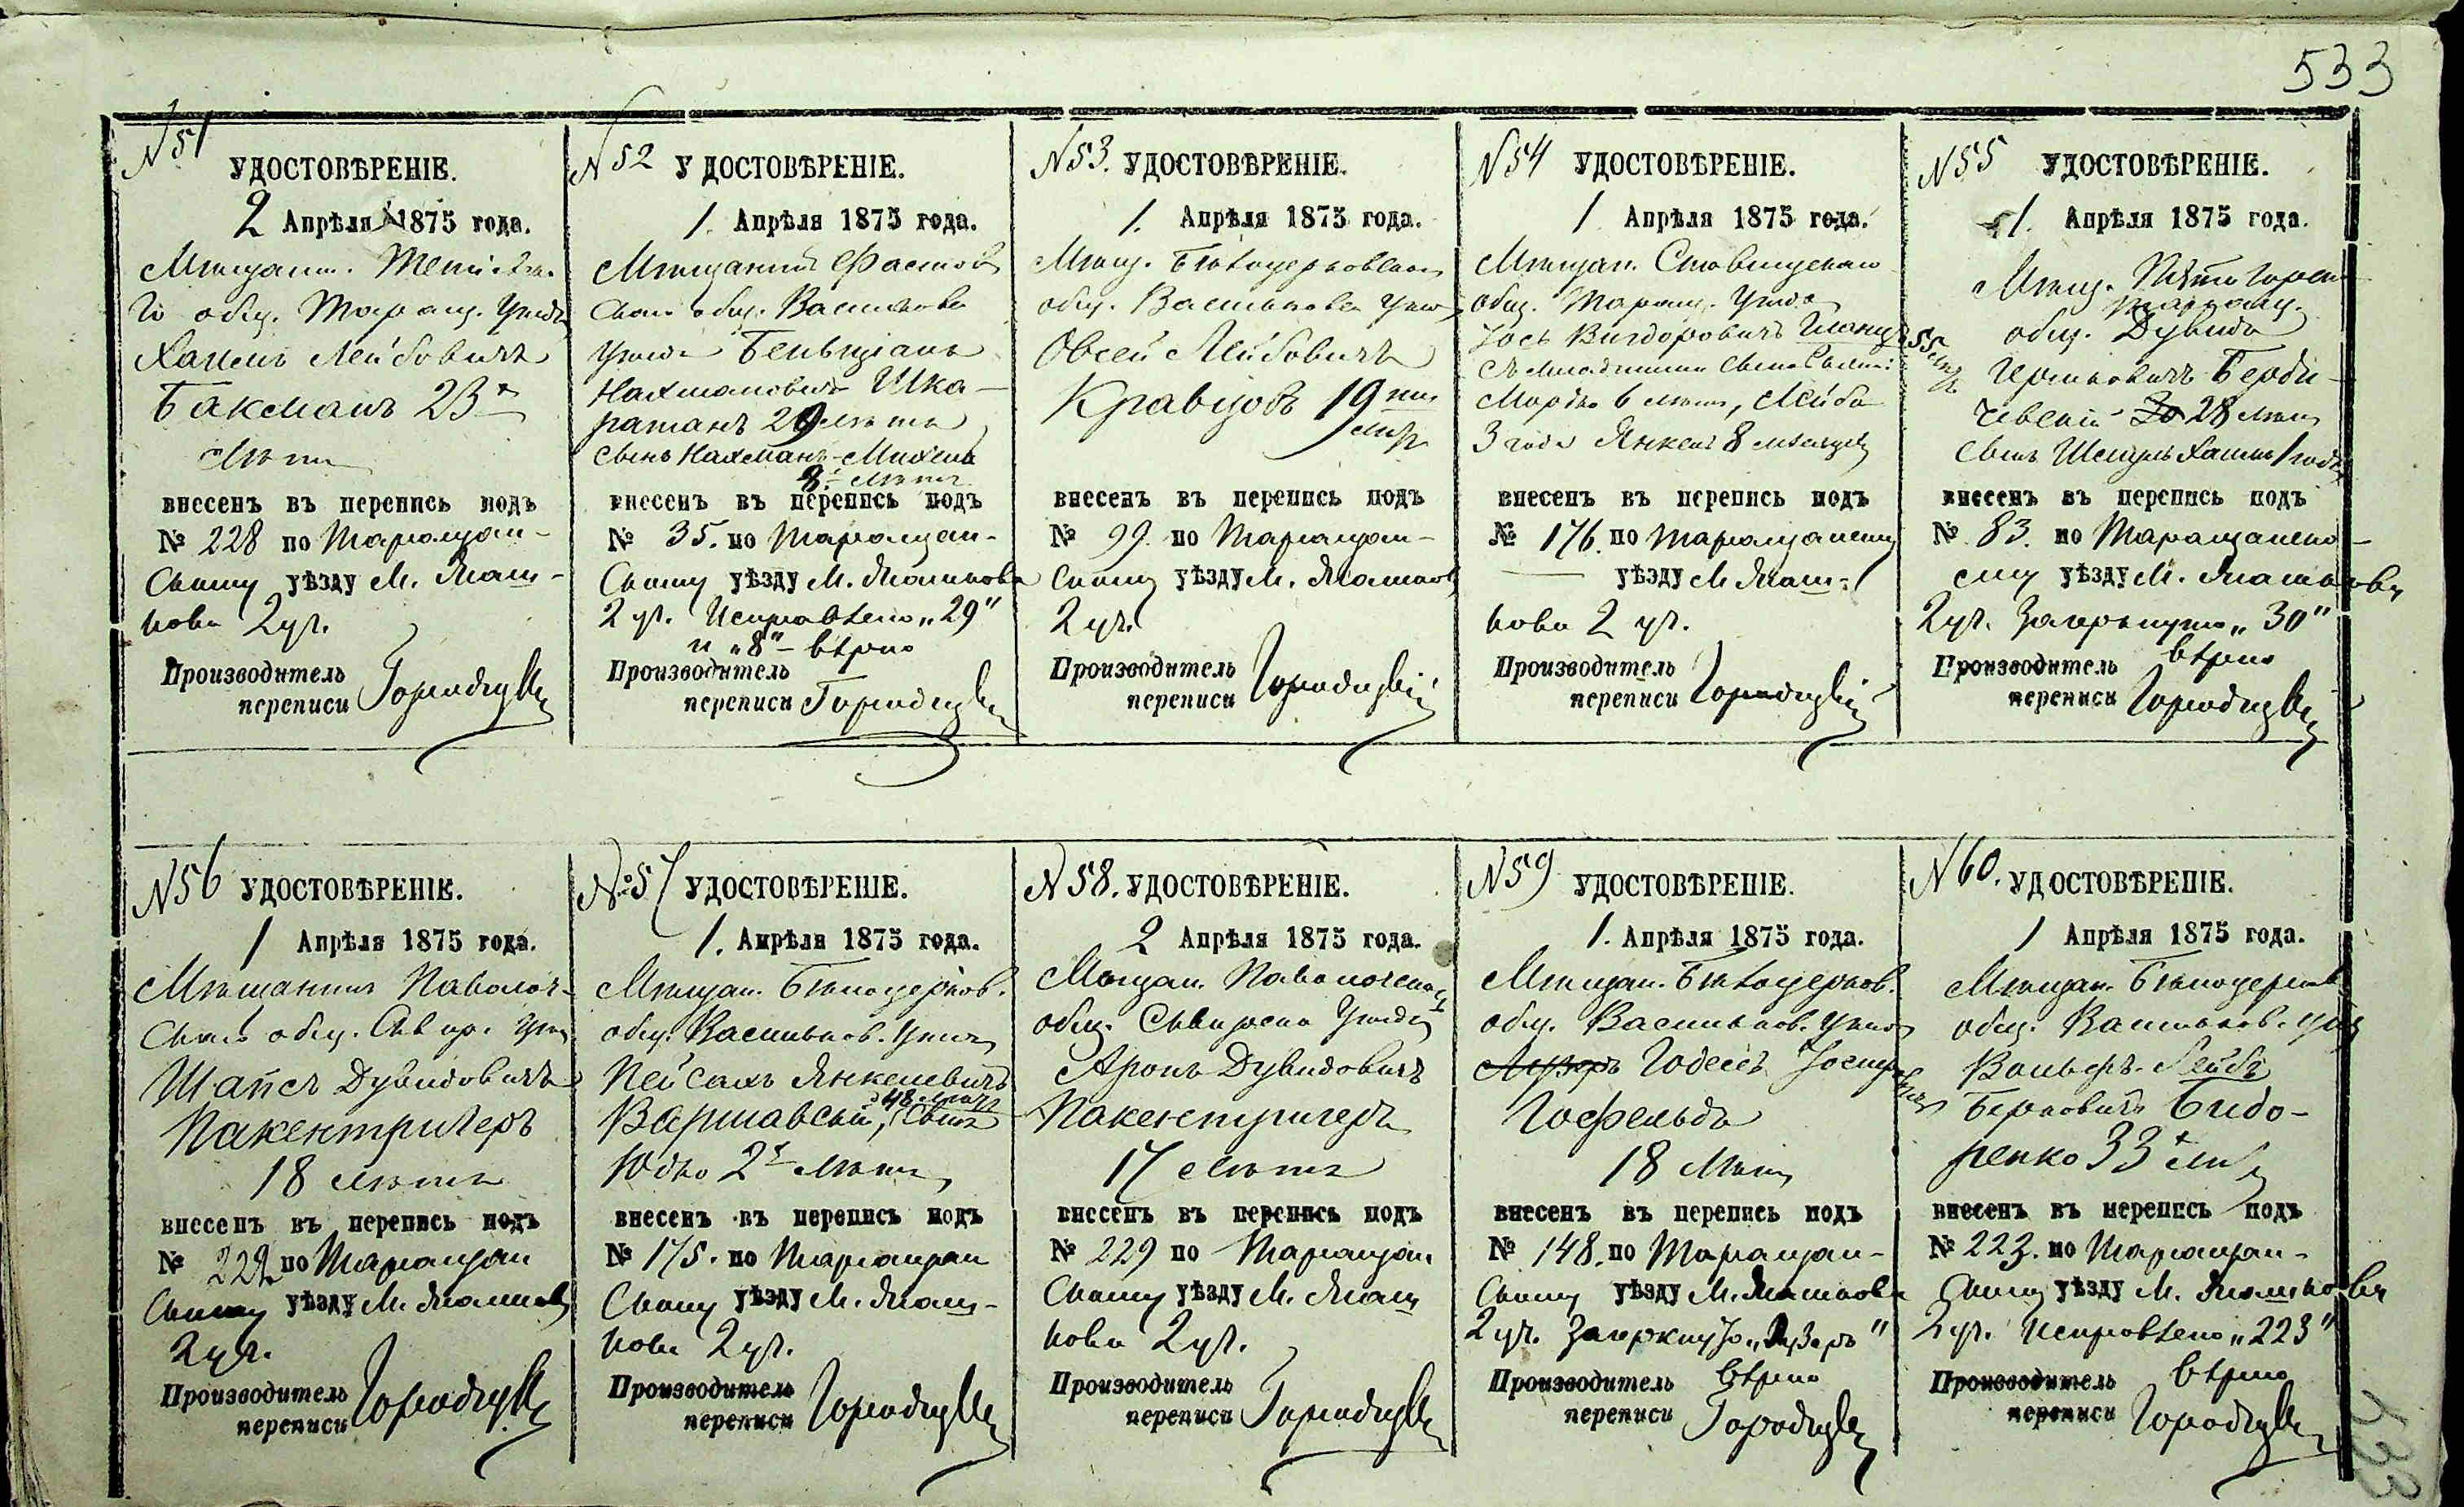 533
N 51
УДОСТОВѢРЕНІЕ.
2 Апрѣля 1875 года.
Мѣщани. Тетіевска-
го общ. Таращ. Уѣзда
Хаимъ Лейбовичъ
Бакманъ 23х
лѣтъ
внесенъ въ перепись подъ
№ 228 по Таращан-
скому уѣзду М. Жаш-
кова 2 уч.
Производитель
переписи Городецкій
N 52
УДОСТОВѢРЕНІЕ.
1. Апрѣля 1875 года.
Мѣщанинъ Фастов
скаго общ. Васильков
Уѣзда Бенціанъ
Нахмановичъ Шка-
ратанъ 29 лѣтъ
сынъ Нахманъ-Михель
8 лѣтъ
внесенъ въ перепись подъ
№ 35. по Таращан-
скому уѣзду М. Жашкова
2 уч. Исправлено „29"
и „8" - вѣрно
Производитель
переписи Городецкій
N 53.
УДОСТОВѢРЕНІЕ.
1. Апрѣля 1875 года.
Мѣщ. Бѣлоцерковскаго
общ. Васильков Уѣзд
Овсей Лейбовичъ
Кравцовъ 19ти
лѣтъ
внесенъ въ перепись подъ
№ 99. по Таращан-
скому уѣзду М. Жашков
2 уч.
Производитель
переписи Городецкій
N 54
УДОСТОВѢРЕНІЕ.
1 Апрѣля 1875 года.
Мѣщан. Ставищскаго
общ. Таращ. Уѣзда
Іось Вигдоровичъ 55 лѣтъ
Мордко 6 лѣтъ, Лейба
3 года Янкель 8 мѣсяцевъ
внесенъ въ перепись подъ
№ 176. по Таращанскому
уѣзду М Жаш-
кова 2 уч.
Производитель
переписи Городецкій
N 55
УДОСТОВѢРЕНІЕ.
1. Апрѣля 1875 года.
Мѣщ. Пятигорск
Таращ.
общ. Дувидъ
Гершковичъ Берди-
чевскій 30 28 лѣтъ
сынъ Шмуль Хаимъ 1 годъ
внесенъ въ перепись подъ
№ 83. по Таращанско-
му уѣзду М. Жашкова
2 уч. Зачеркнуто „30"
вѣрно
Производитель
переписи Городецкій
N 56
УДОСТОВѢРЕНІЕ.
1 Апрѣля 1875 года.
Мѣщанинъ Паволоч-
скаго общ. Сквир. Уѣзд
Шапсъ Дувидовичъ
Пакентригеръ
18 лѣтъ
внесенъ въ перепись подъ
№ 222 по Таращан
скому уѣзду М. Жашков
2 уч.
Производитель
переписи Городецкій
№ 57
УДОСТОВѢРЕНІЕ.
1. Апрѣля 1875 года.
Мѣщан. Бѣлоцерков.
общ. Васильков. Уѣзда
Пейсахъ Янкелевичъ
48 лѣтъ
Варшавскій, сынъ
Юдко 2х лѣтъ
внесенъ въ перепись подъ
№ 175. по Таращан
скому уѣзду М. Жаш-
кова 2 уч.
Производитель
переписи Городецкій
N 58.
УДОСТОВѢРЕНІЕ.
2 Апрѣля 1875 года.
Мѣщан. Паволочска
общ. Сквирска Уѣзда
Аронъ Дувидовичъ
Пакентригеръ
17 лѣтъ
внесенъ въ перепись подъ
№ 229 по Таращан
скому уѣзду М. Жаш
кова 2 уч.
Производитель
переписи Городецкій
N 59
УДОСТОВѢРЕНІЕ.
1. Апрѣля 1875 года.
Мѣщан. Бѣлоцерков.
общ. Васильков. Уѣзд
Лузеръ Годесъ
Гофельдъ
18 лѣтъ
внесенъ въ перепись подъ
№ 148. по Таращан-
скому уѣзду М. Жашкова
2 уч. Зачеркнуто „Лузеръ"
вѣрно
Производитель
переписи Городецкій
N 60.
УДОСТОВѢРЕНІЕ.
1 Апрѣля 1875 года.
Мѣщан. Бѣлоцерков
общ. Васильков. Уѣзд
Вольфъ-Лейбъ
Берковичъ Бидо-
ренко 33х лѣтъ
внесенъ въ перепись подъ
№ 223. по Таращан-
скому уѣзду М. Жашкова
2 уч. Исправлено „223"
вѣрно
Производитель
переписи Городецкій
533